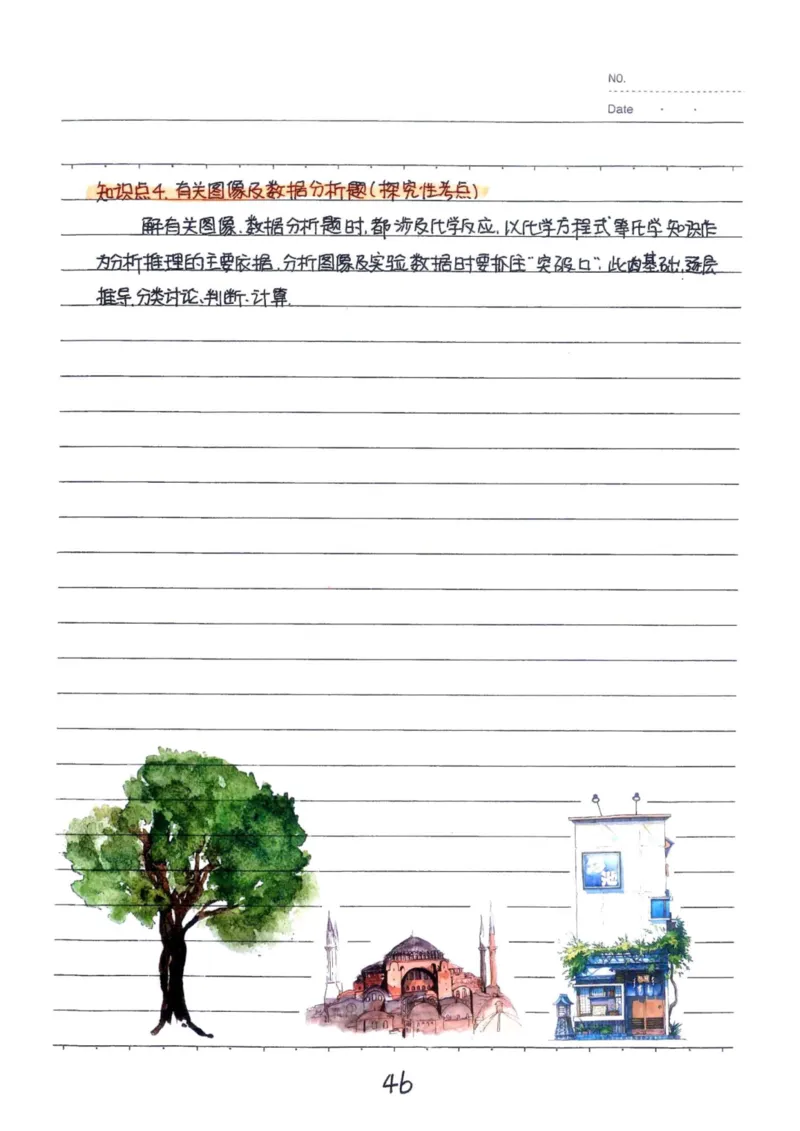 NO.
Date
知识点4.有关图像及数据分析题(探究性考点)
解有关图像、数据分析题时,都涉及化学反应,以化学方程式等化学知识作
为分析推理的主要依据.分析图像及实验数据时要抓住"突破口",此为基础,逐层
推导.分类讨论、判断、计算.
46